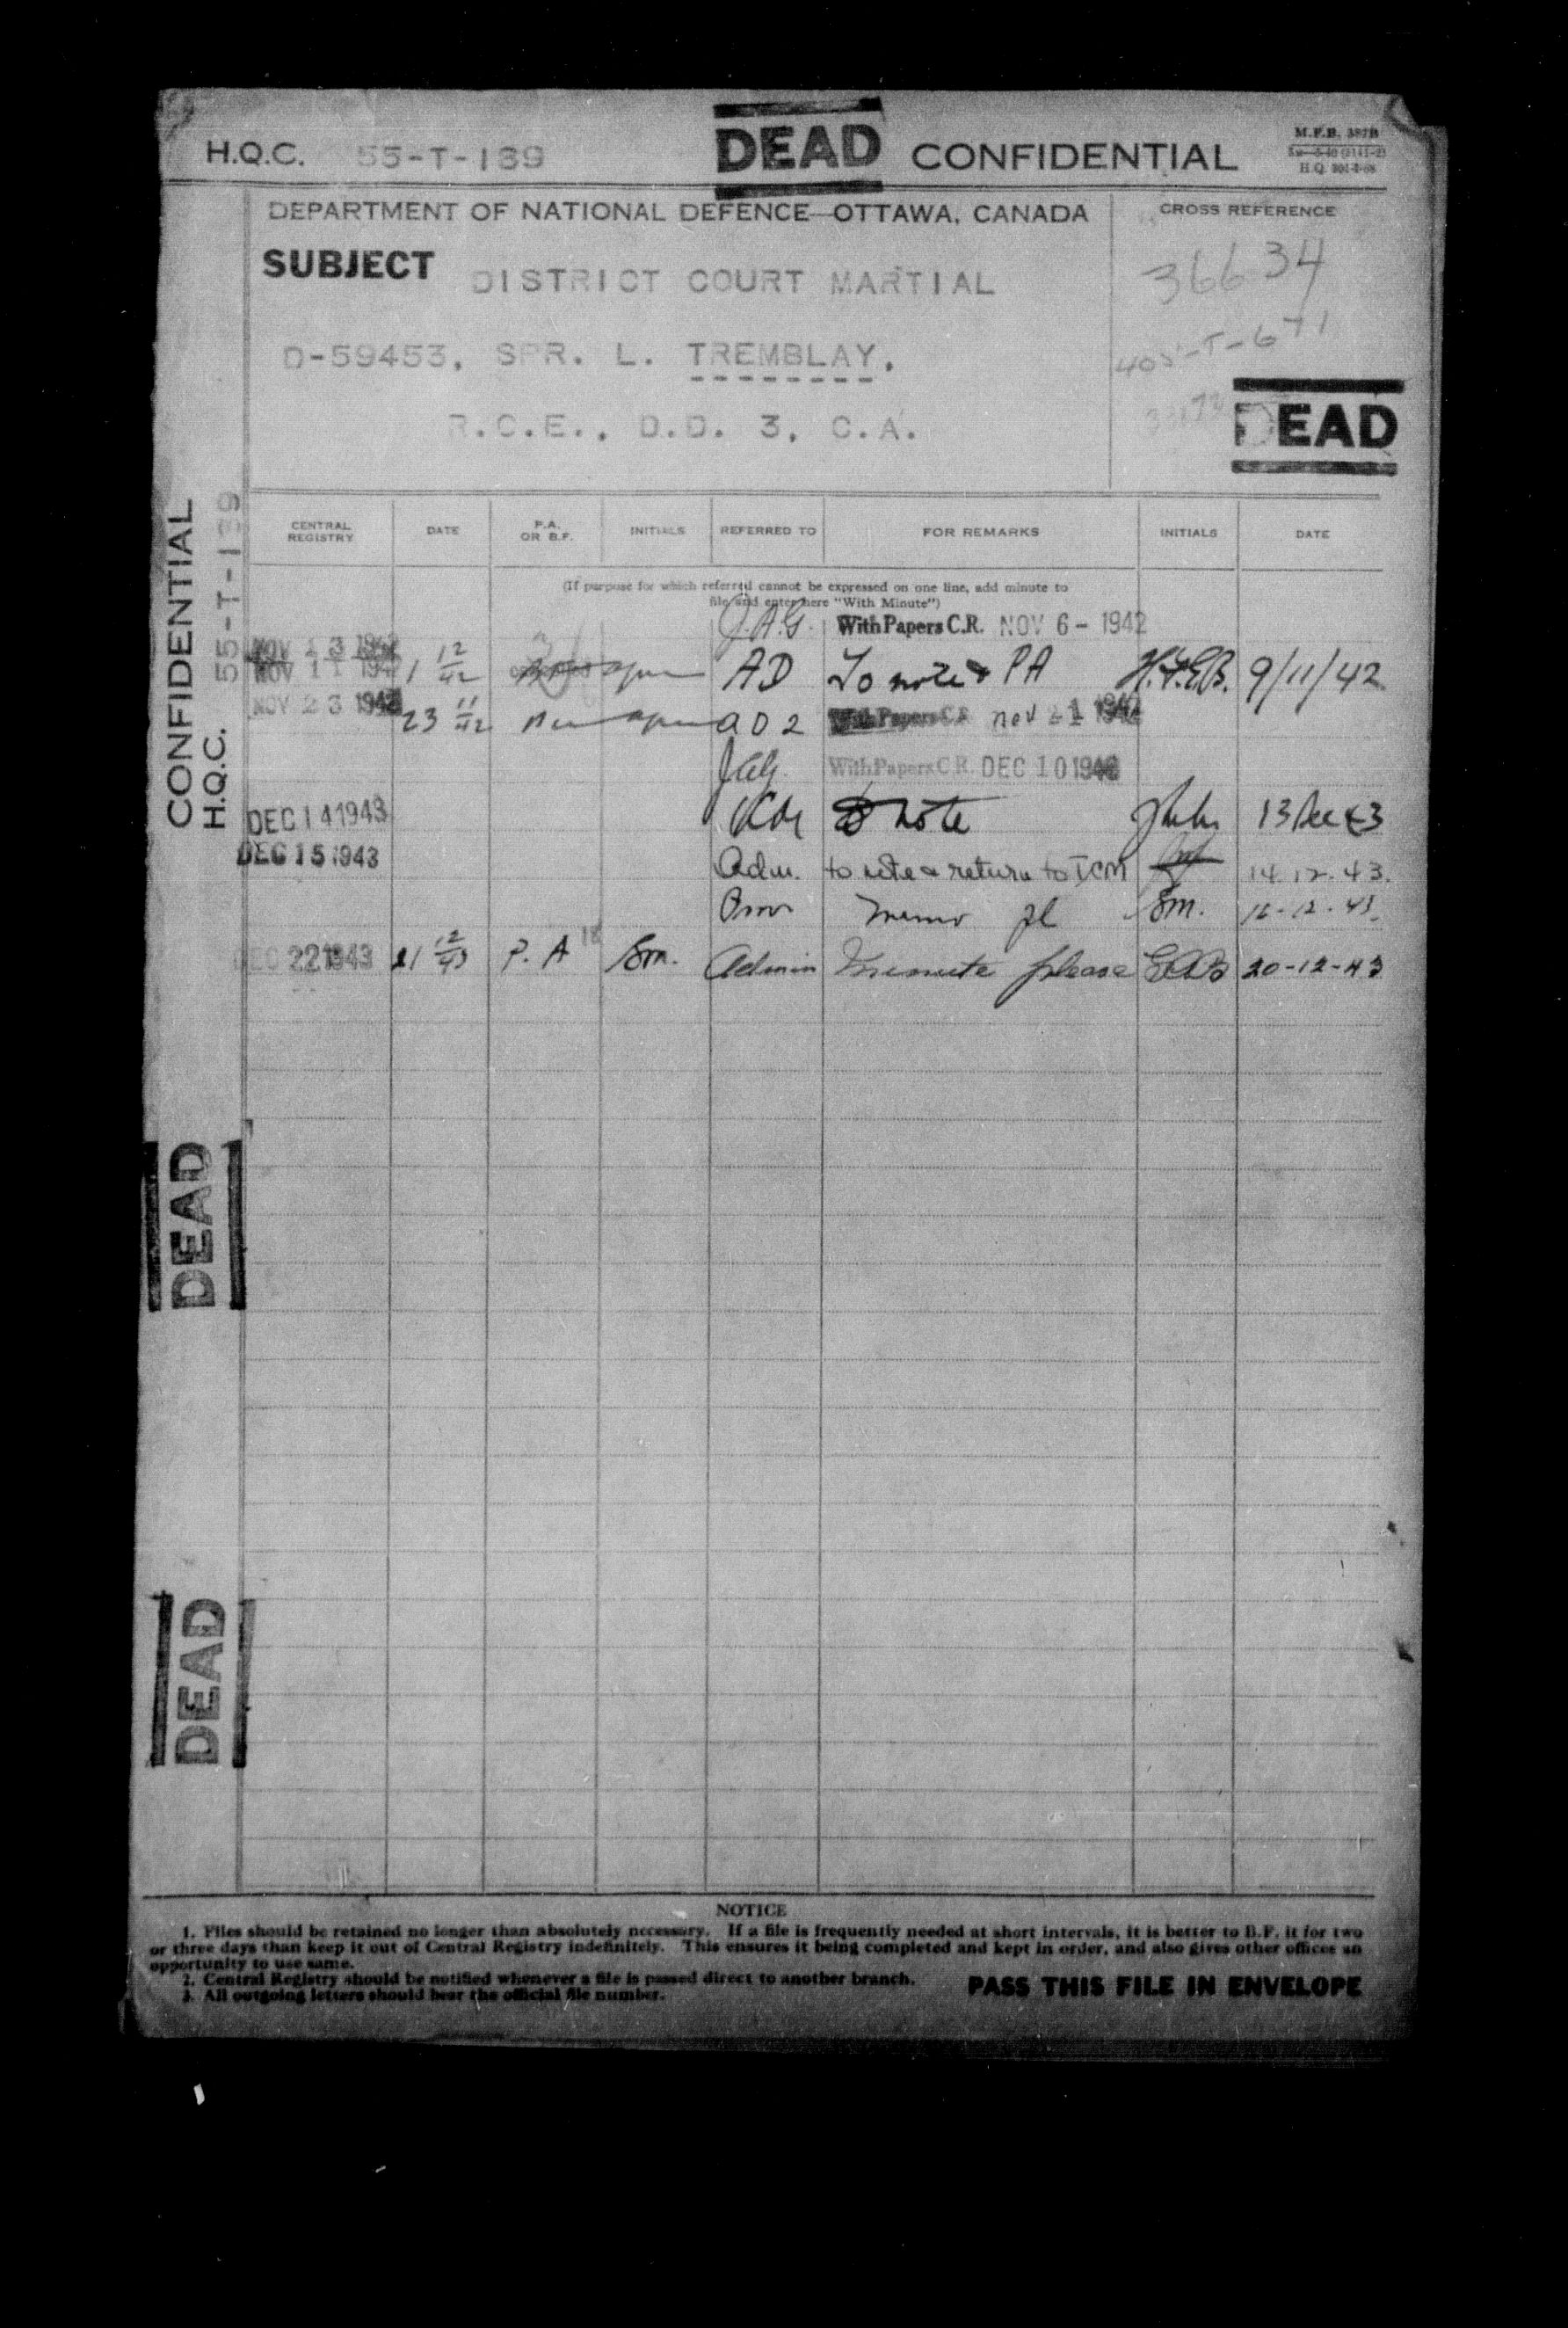 H.Q.C. 55-T-189 DEAD CONFIDENTIAL
M.F.B. 387B
DEPARTMENT OF NATIONAL DEFENCE—OTTAWA, CANADA
CROSS REFERENCE
SUBJECT DISTRICT COURT MARTIAL
36634
D-59453, SPR. L. TREMBLAY,
405-T-671
R.C.E., D.D. 3, C.A.
DEAD
CONFIDENTIAL
H.Q.C. 55-T-189
CENTRAL REGISTRY DATE P.A. OR B.F. INITIALS REFERRED TO FOR REMARKS INITIALS DATE
(If purpose for which referred cannot be expressed on one line, add minute to
file and enter here "With Minute")
J.A.G. With Papers C.R. NOV 6 - 1942
NOV 13 1942
NOV 11 1942 1 12/42 AD To note & PA H.F.E.B. 9/11/42
NOV 23 1942 23 11/42 AD2 With Papers C.R. NOV 21 1942
JAG. With Papers C.R. DEC 10 1943
DEC 14 1943 to note 13 Dec 43
DEC 15 1943 Adm. to note & return to 14.12.43.
memo Sm.
DEC 22 1943 21 12/43 P.A 18 Sm. Admin minute please 20-12-43
DEAD
DEAD
NOTICE
1. Files should be retained no longer than absolutely necessary. If a file is frequently needed at short intervals, it is better to B.F. it for two
or three days than keep it out of Central Registry indefinitely. This ensures it being completed and kept in order, and also gives other offices an
opportunity to use same.
2. Central Registry should be notified whenever a file is passed direct to another branch.
3. All outgoing letters should bear the official file number.
PASS THIS FILE IN ENVELOPE